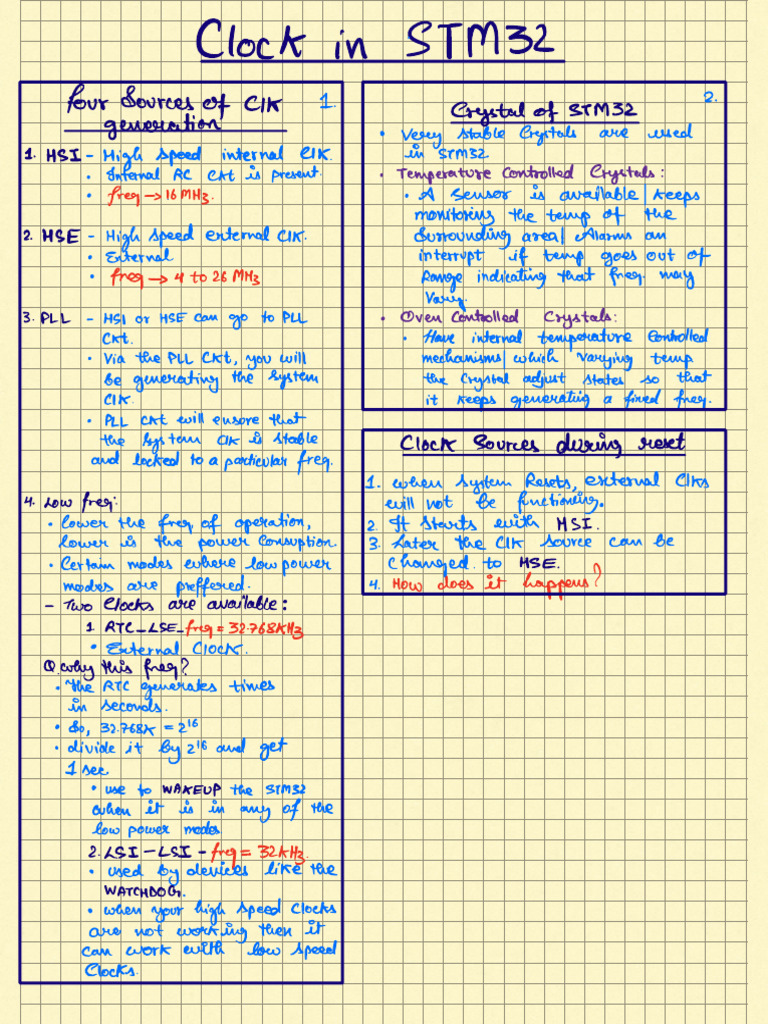 Clock in STM32
Four Sources of Clk 1.
generation
1. HSI - High speed internal Clk.
• Internal RC Ckt is present.
• freq → 16 MHz.
2. HSE - High speed external Clk.
• External
• freq → 4 to 26 MHz
3. PLL - HSI or HSE can go to PLL
Ckt.
• Via the PLL Ckt, you will
be generating the system
Clk.
• PLL Ckt will ensore that
the system Clk is stable
and locked to a particular freq.
4. Low freq:
• lower the freq of operation,
lower is the power Consuption.
• Certain modes where low power
modes are preffered.
- Two Clocks are available:
1 RTC_LSE_freq = 32.768KHz
• External Clock.
Q. why this freq?
• The RTC generates times
in seconds.
• So, 32.768K = 2^16
• divide it by 2^16 and get
1 sec
• use to WAKEUP the STM32
when it is in any of the
low power modes
2. LSI - LSI - freq = 32KHz.
• used by devices like the
WATCHDOG.
• when your high speed Clocks
are not working then it
can work with low speed
Clocks.
2.
Crystal of STM32
• Very stable Crystals are used
in STM32
• Temperature Controlled Crystals:
• A sensor is available | keeps
monitoring the temp of the
surrounding area | Alarms an
interrupt if temp goes out of
range indicating that freq. may
vary.
• Oven Controlled Crystals:
• Have internal temperature Controlled
mechanisms | which varying temp
the Crystal adjust states so that
it keeps generating a fixed freq.
Clock Sources during reset
1. when system Resets, external Clks
will not be functioning.
2. It starts with HSI.
3. Later the Clk source can be
changed to HSE.
4. How does it happens?